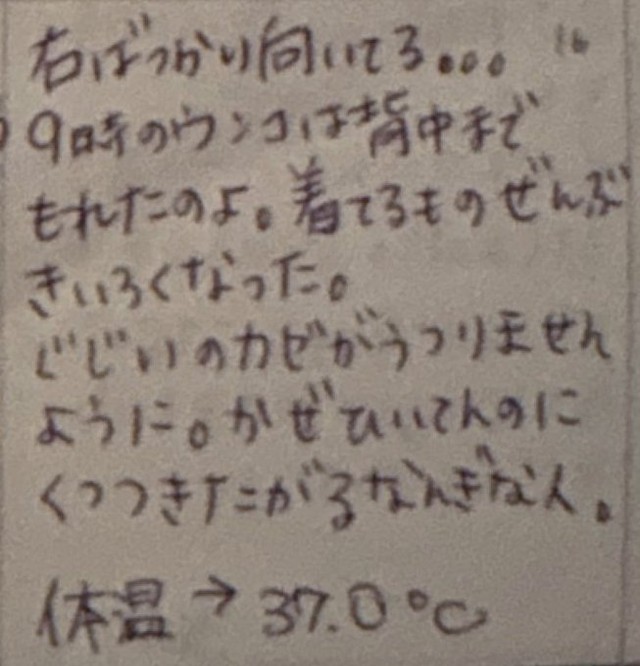 右ばっかり向いてる... 16
9時のウンコは背中まで
もれたのよ。着てるものぜんぶ
きいろくなった。
じじいのカゼがうつりません
ように。かぜひいてんのに
くっつきたがるなんぎな人。
体温→37.0℃